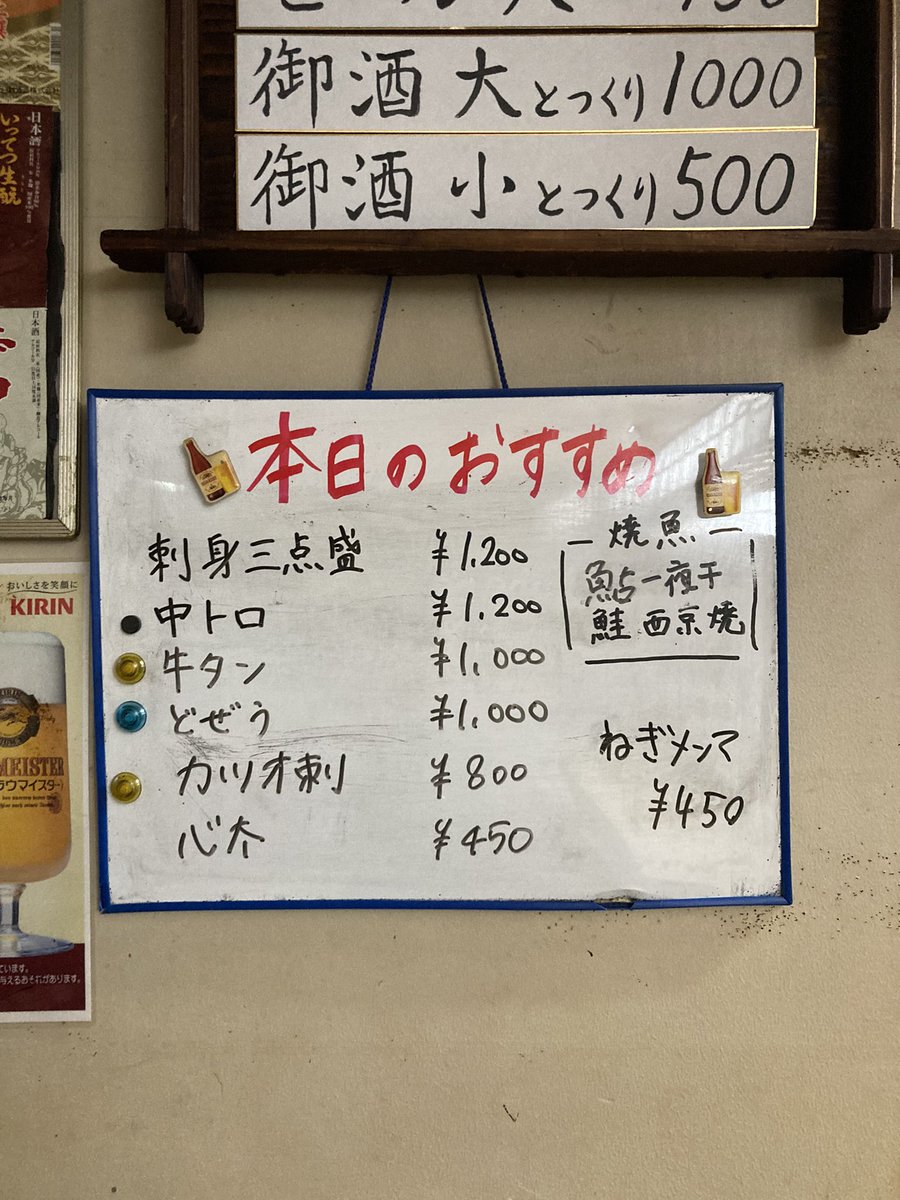 御酒 大 とっくり 1000
御酒 小 とっくり 500
本日のおすすめ
刺身三点盛 ¥1,200
中トロ ¥1,200
牛タン ¥1,000
どぜう ¥1,000
カツオ刺 ¥800
心太 ¥450
焼魚
鮎一夜干
鮭 西京焼
ねぎメンマ
¥450
日本酒
いってつ生酛
日本酒
おいしさを笑顔に
KIRIN
MEISTER
ラウマイスター)
ています。
与えるおそれがあります。